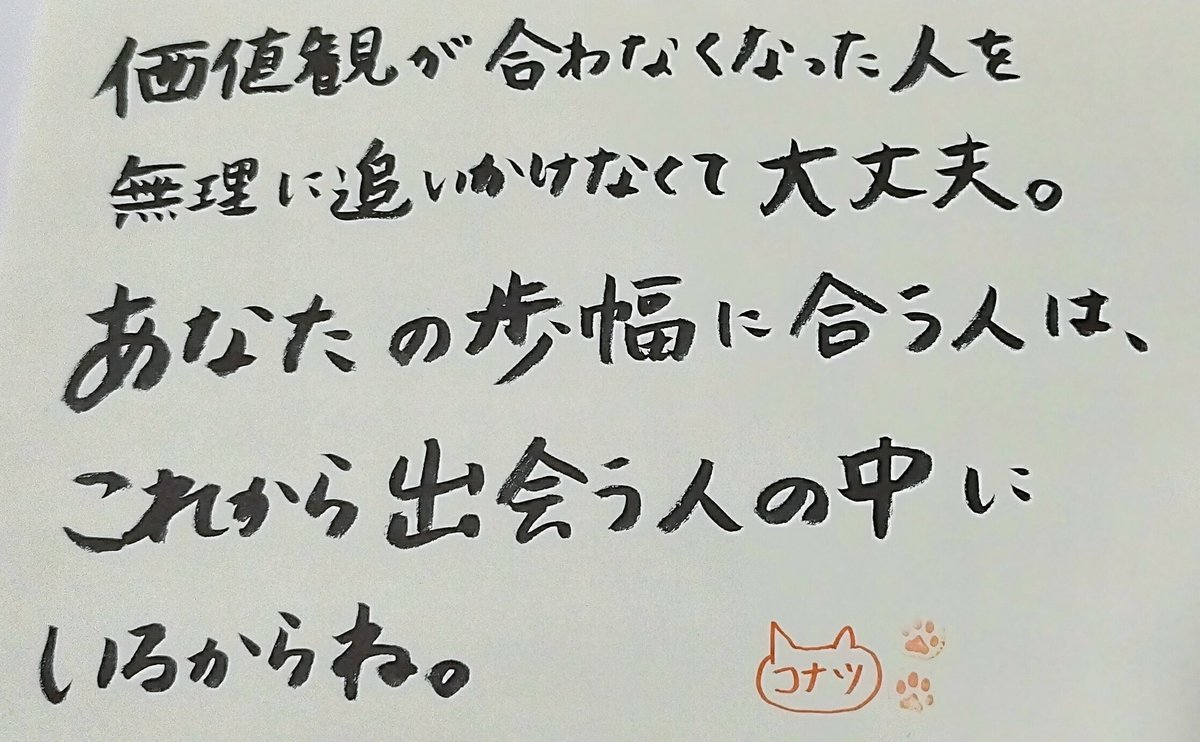 価値観が合わなくなった人を
無理に追いかけなくて大丈夫。
あなたの歩幅に合う人は、
これから出会う人の中に
いるからね。
コナツ